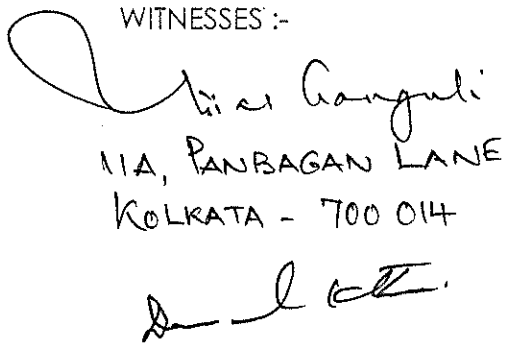 WITNESSES :-
Ganguli
11A, PANBAGAN LANE
KOLKATA - 700 014